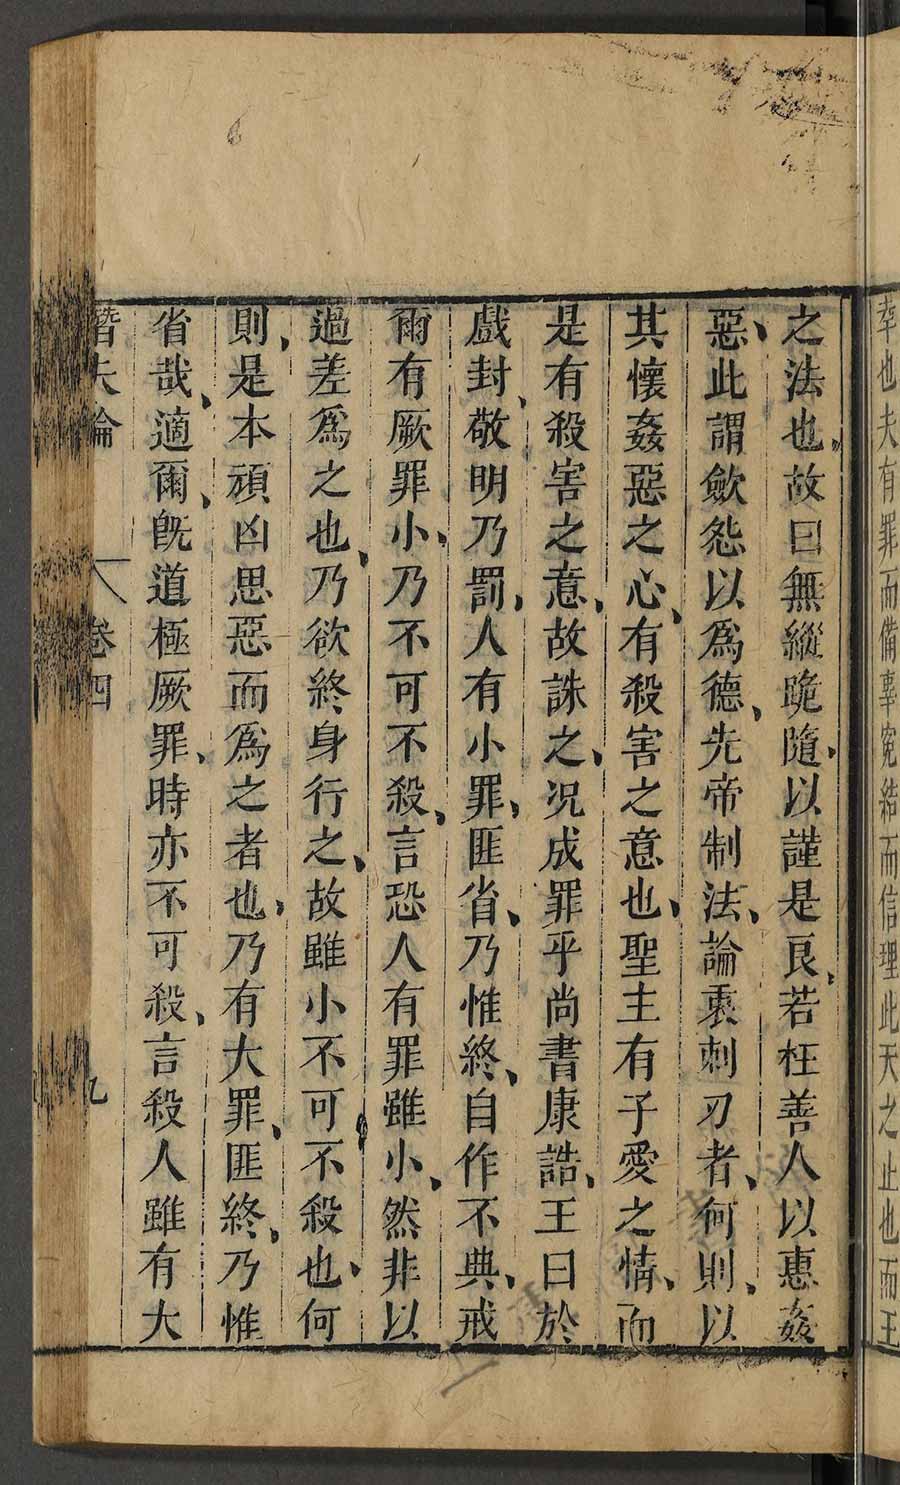 辜也夫有罪而備辜冤結而信理此天之止也而王
之法也故曰無縱詭隨以謹是良若枉善人以惠姦
惡此謂歛怨以爲德先帝制法論衷刺刃者何則以
其懷姦惡之心有殺害之意也聖主有子愛之情而
是有殺害之意故誅之况成罪乎尚書康誥王曰於
戲封敬明乃罰人有小罪匪省乃惟終自作不典戒
爾有厥罪小乃不可不殺言恐人有罪雖小然非以
過差爲之也乃欲終身行之故雖小不可不殺也何
則是本頑凶思惡而爲之者也乃有大罪匪終乃惟
省哉適爾既道極厥罪時亦不可殺言殺人雖有大
潛夫論 卷四 九